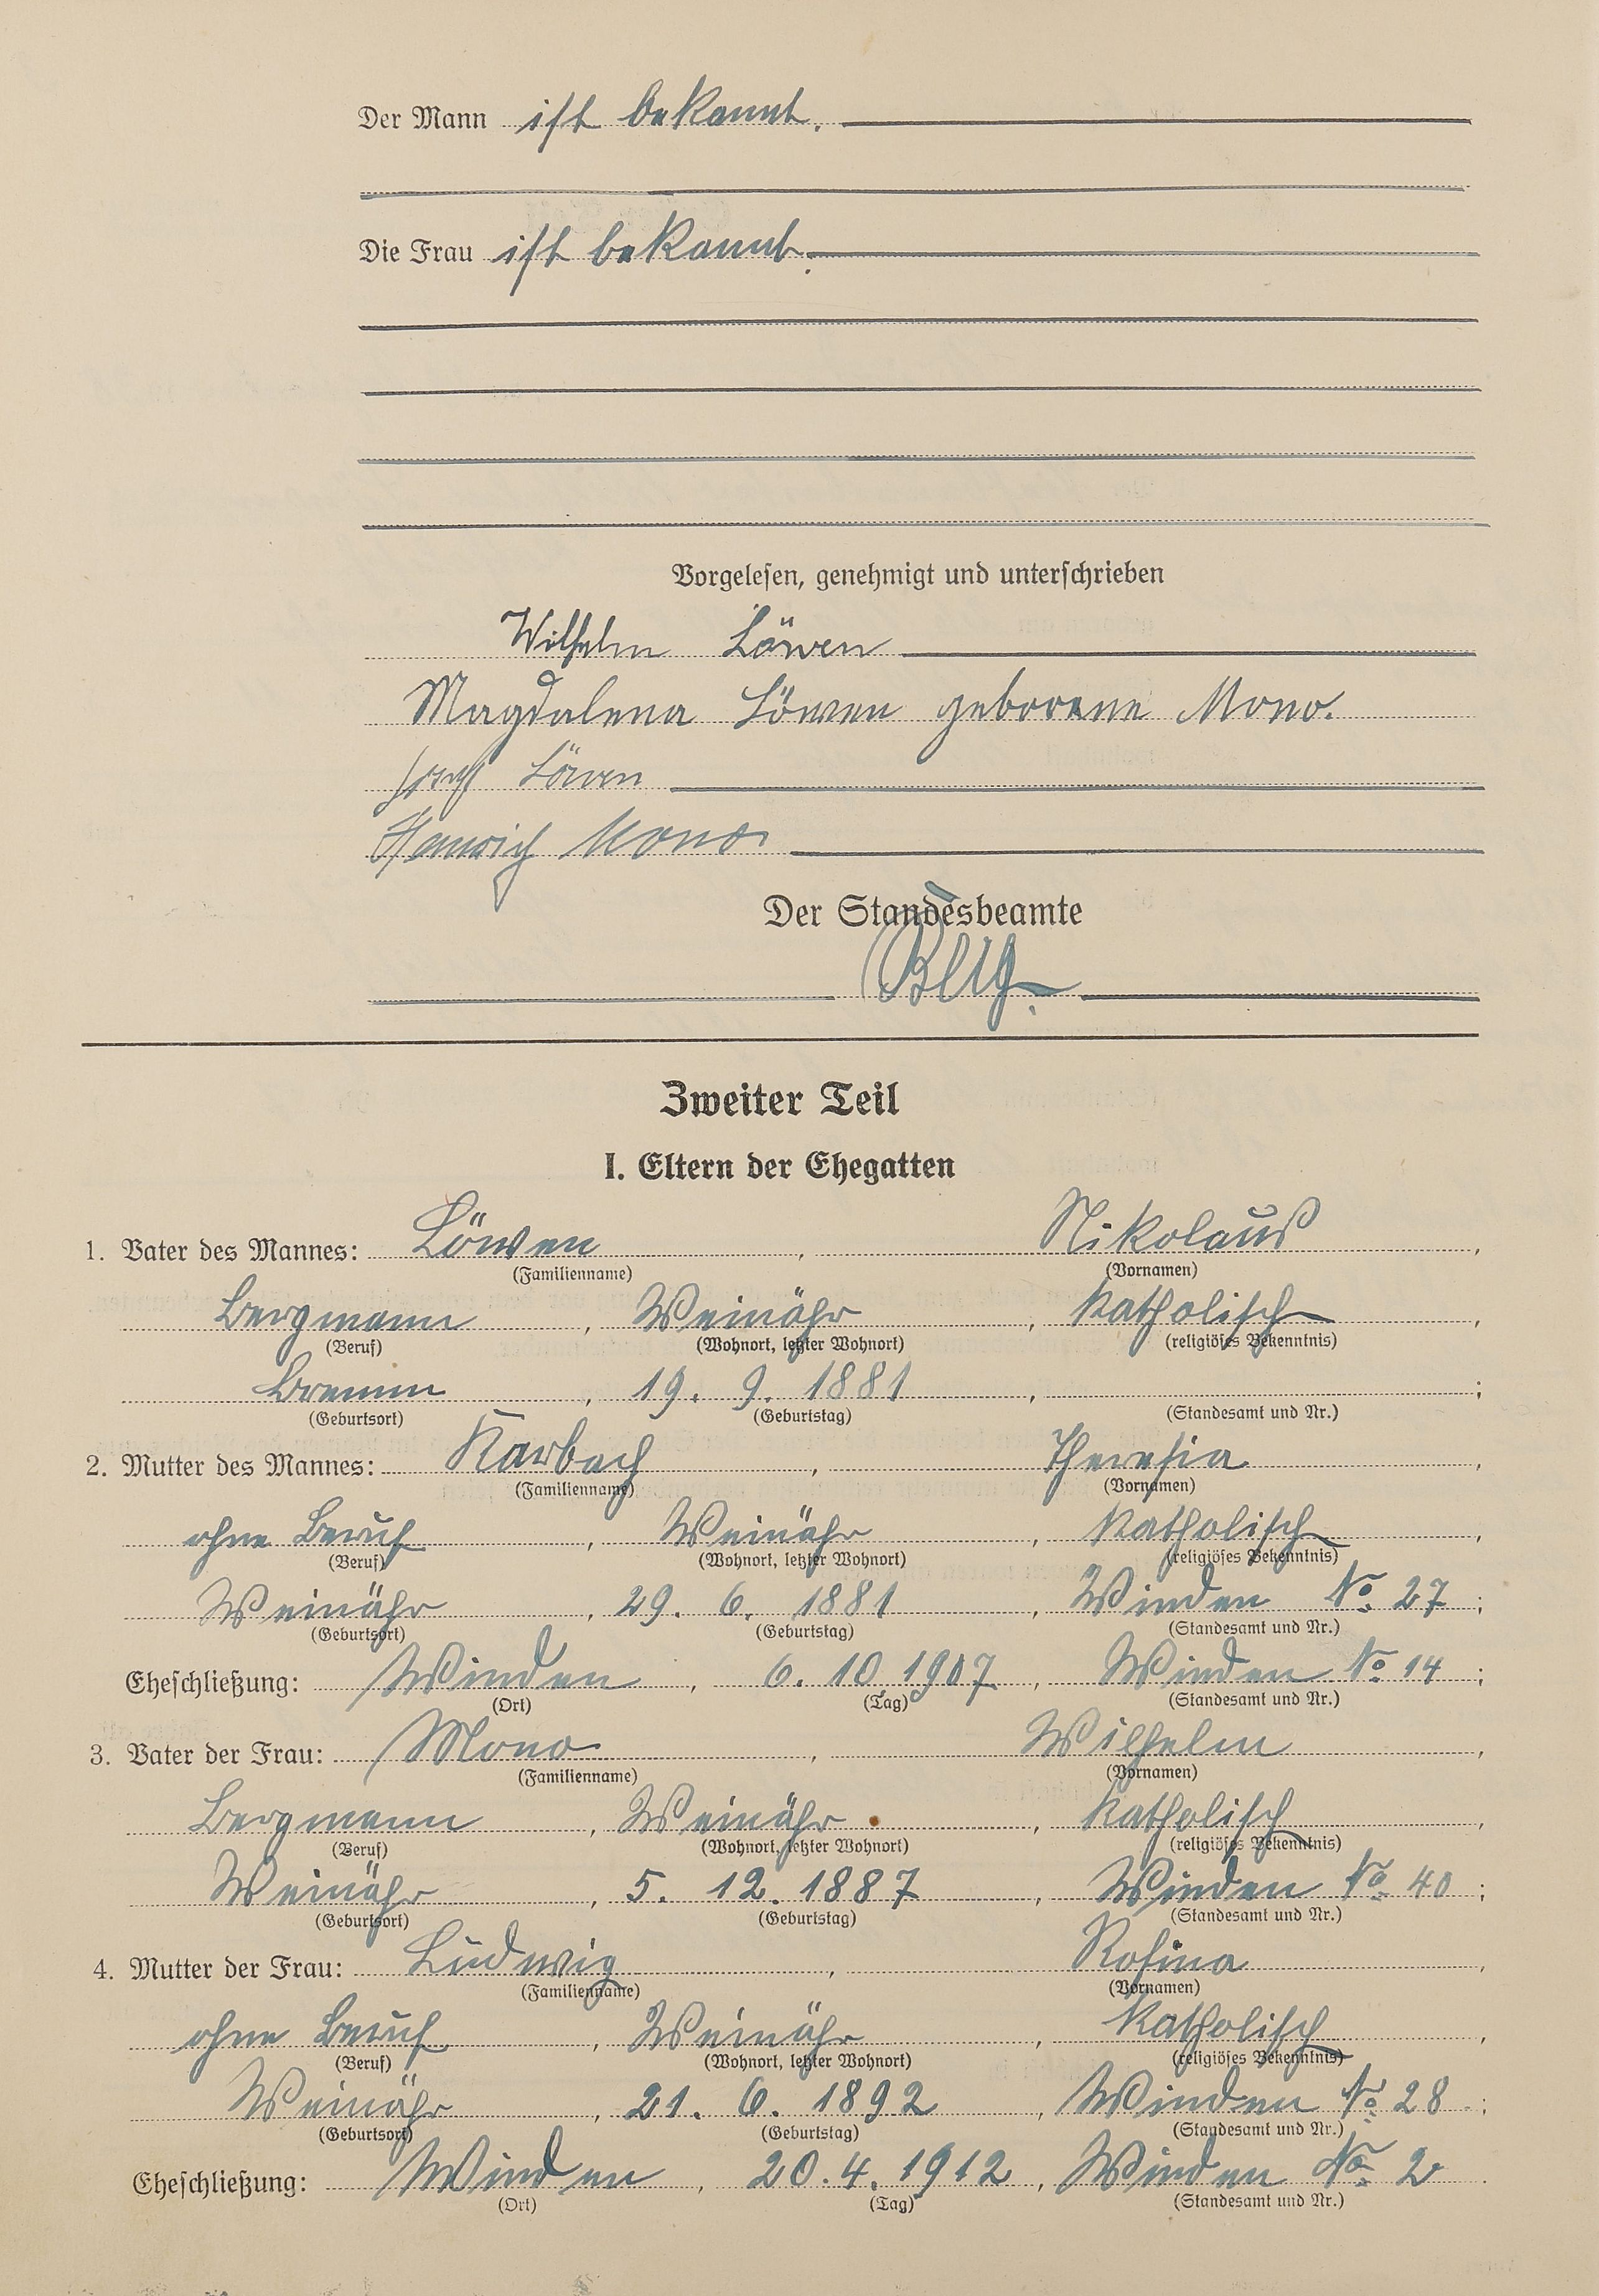 Der Mann ist bekannt.
Die Frau ist bekannt.
Vorgelesen, genehmigt und unterschrieben
Wilhelm Löwen
Magdalena Löwen geborene Mono.
Josef Löwen
Heinrich Mono
Der Standesbeamte
Zweiter Teil
I. Eltern der Ehegatten
1. Vater des Mannes: Löwen, Nikolaus,
(Familienname) (Vornamen)
Bergmann, Weinähr, katholisch,
(Beruf) (Wohnort, letzter Wohnort) (religiöses Bekenntnis)
Bremm, 19. 9. 1881, ;
(Geburtsort) (Geburtstag) (Standesamt und Nr.)
2. Mutter des Mannes: Karbach, Theresia,
(Familienname) (Vornamen)
ohne Beruf, Weinähr, katholisch,
(Beruf) (Wohnort, letzter Wohnort) (religiöses Bekenntnis)
Weinähr, 29. 6. 1881, Winden No. 27;
(Geburtsort) (Geburtstag) (Standesamt und Nr.)
Eheschließung: Winden, 6. 10. 1907, Winden No. 14;
(Ort) (Tag) (Standesamt und Nr.)
3. Vater der Frau: Mono, Wilhelm,
(Familienname) (Vornamen)
Bergmann, Weinähr, katholisch,
(Beruf) (Wohnort, letzter Wohnort) (religiöses Bekenntnis)
Weinähr, 5. 12. 1887, Winden No. 40;
(Geburtsort) (Geburtstag) (Standesamt und Nr.)
4. Mutter der Frau: Ludwig, Rosina,
(Familienname) (Vornamen)
ohne Beruf, Weinähr, katholisch,
(Beruf) (Wohnort, letzter Wohnort) (religiöses Bekenntnis)
Weinähr, 21. 6. 1892, Winden No. 28;
(Geburtsort) (Geburtstag) (Standesamt und Nr.)
Eheschließung: Winden, 20. 4. 1912, Winden No. 2.
(Ort) (Tag) (Standesamt und Nr.)